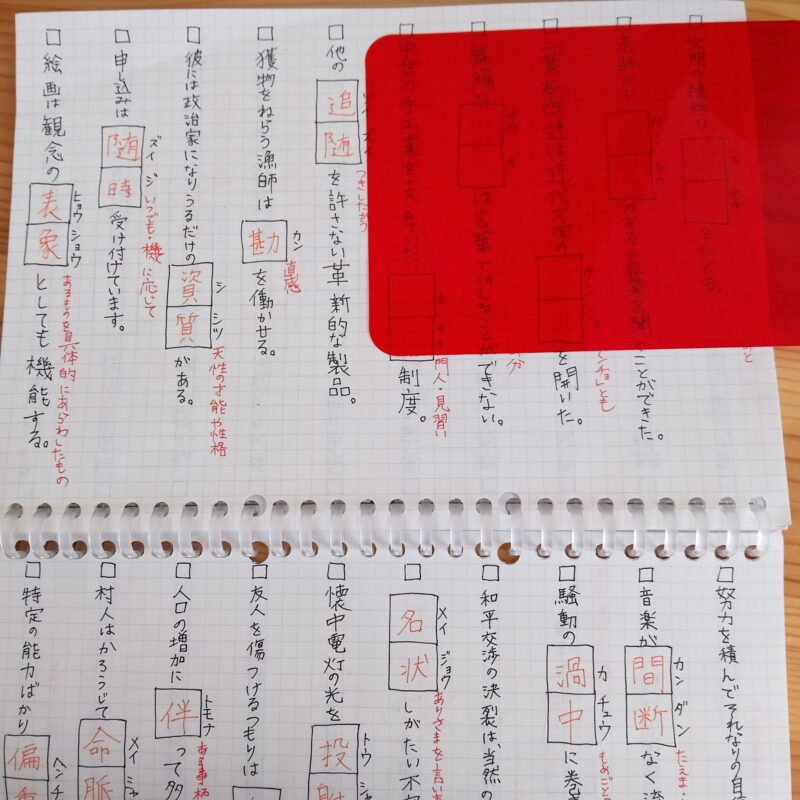 □文明の
キ
をたどる。
□名師から
のある言葉を聞くことができた。
□二葉亭四迷は近代文学の
タン ショ
を開いた。
□舞踊の
は言葉で伝えることができない。
□中世の手工業を支えていた
ト テイ
制度。
門人・見習い
□他の追随を許さない革新的な製品。
ツイ ズイ
つきしたがう
□獲物をねらう漁師は勘を働かせる。
カン
直感
□彼には政治家になりうるだけの資質がある。
シ シツ
天性の才能や性格
□申し込みは随時受け付けています。
ズイ ジ
いつでも・機に応じて
□絵画は観念の表象としても機能する。
ヒョウ ショウ
あるものを具体的にあらわしたもの
□努力を積んでそれなりの自
□音楽が間断なく
カン ダン
たえま・
□騒動の渦中に巻き
カ チュウ
もめごと
□和平交渉の決裂は、当然の
□名状しがたい不
メイ ジョウ
ありさまを言い
□懐中電灯の光を投射
トウ シャ
□友人を傷つけるつもりは
□人口の増加に伴って多
トモナ
ある事柄
□村人はかろうじて命脈
メイ
□特定の能力ばかり偏重
ヘンチ